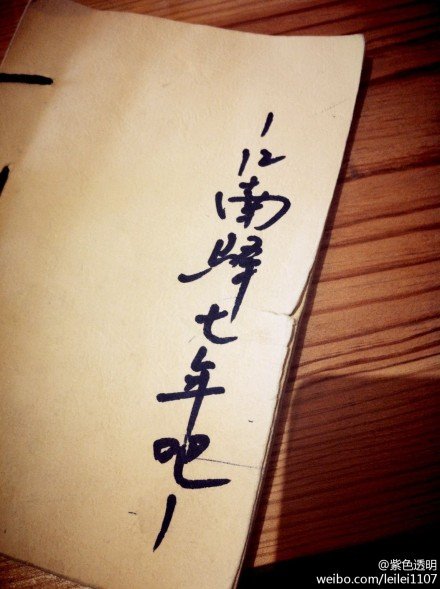 -江南驿七年吧-
@紫色透明
weibo.com/leilei1107